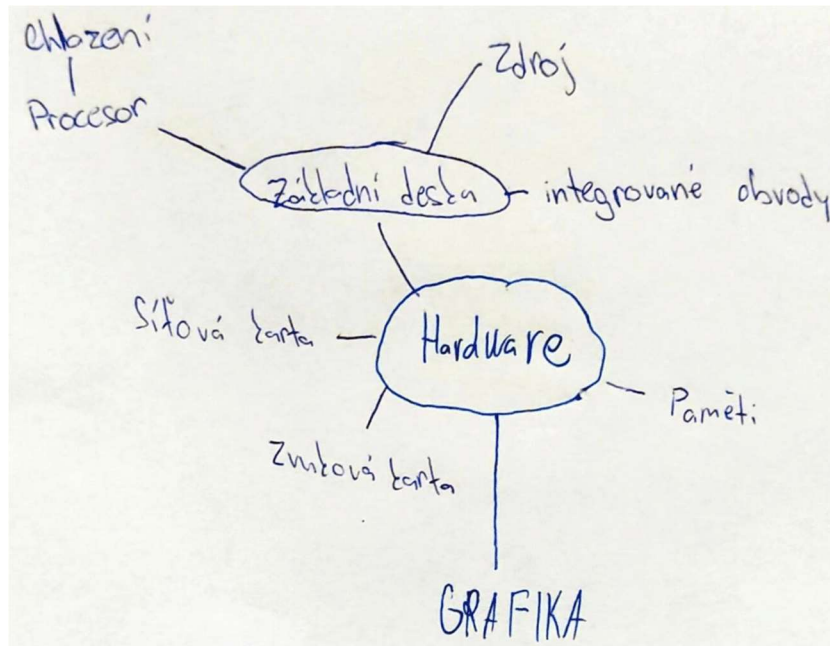 Chlazení
Zdroj
Procesor
Základní deska
integrované obvody
Síťová karta
Hardware
Paměti
Zvuková karta
GRAFIKA